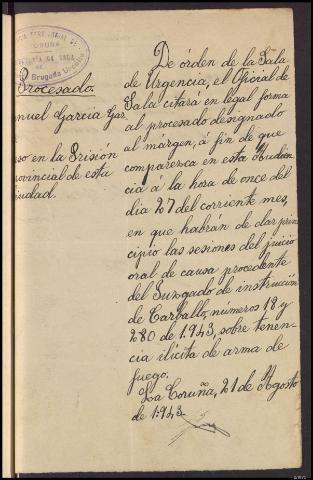 CORUÑA
Procesado
nuel Garcia Gar
so en la Prisión
ovincial de esta
iudad.
De órden de la Sala
de Urgencia, el Oficial de
Sala citará en legal forma
al procesado designado
al margen, á fin de que
comparezca en esta Audien
cia á la hora de once del
dia 27 del corriente mes,
en que habrán de dar prin
cipio las sesiones del juicio
oral de causa procedente
del Juzgado de instrucción
de Carballo, números 18 y
280 de 1.943, sobre tenen-
cia ilícita de arma de
fuego.
La Coruña, 21 de Agosto
de 1.943.